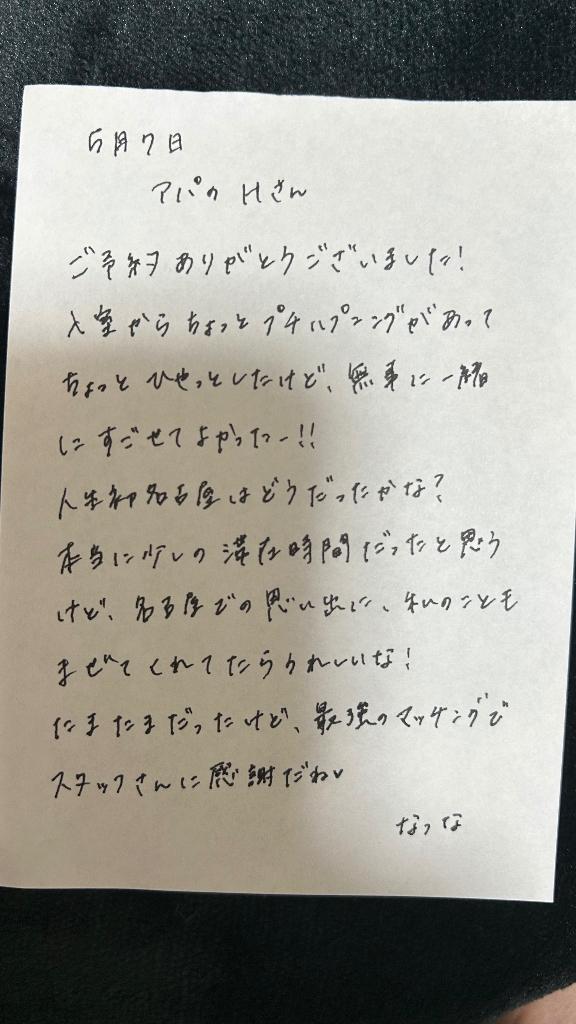 5月7日
アパの Hさん
ご予約ありがとうございました!
入室からちょっとプチハプニングがあって
ちょっとひやっとしたけど、無事に一緒
にすごせてよかったー!!
人生初名古屋はどうだったかな?
本当に少しの滞在時間だったと思う
けど、名古屋での思い出に、私のことも
まぜてくれてたらうれしいな!
たまたまだったけど、最強のマッチングで
スタッフさんに感謝だね♥
なつな